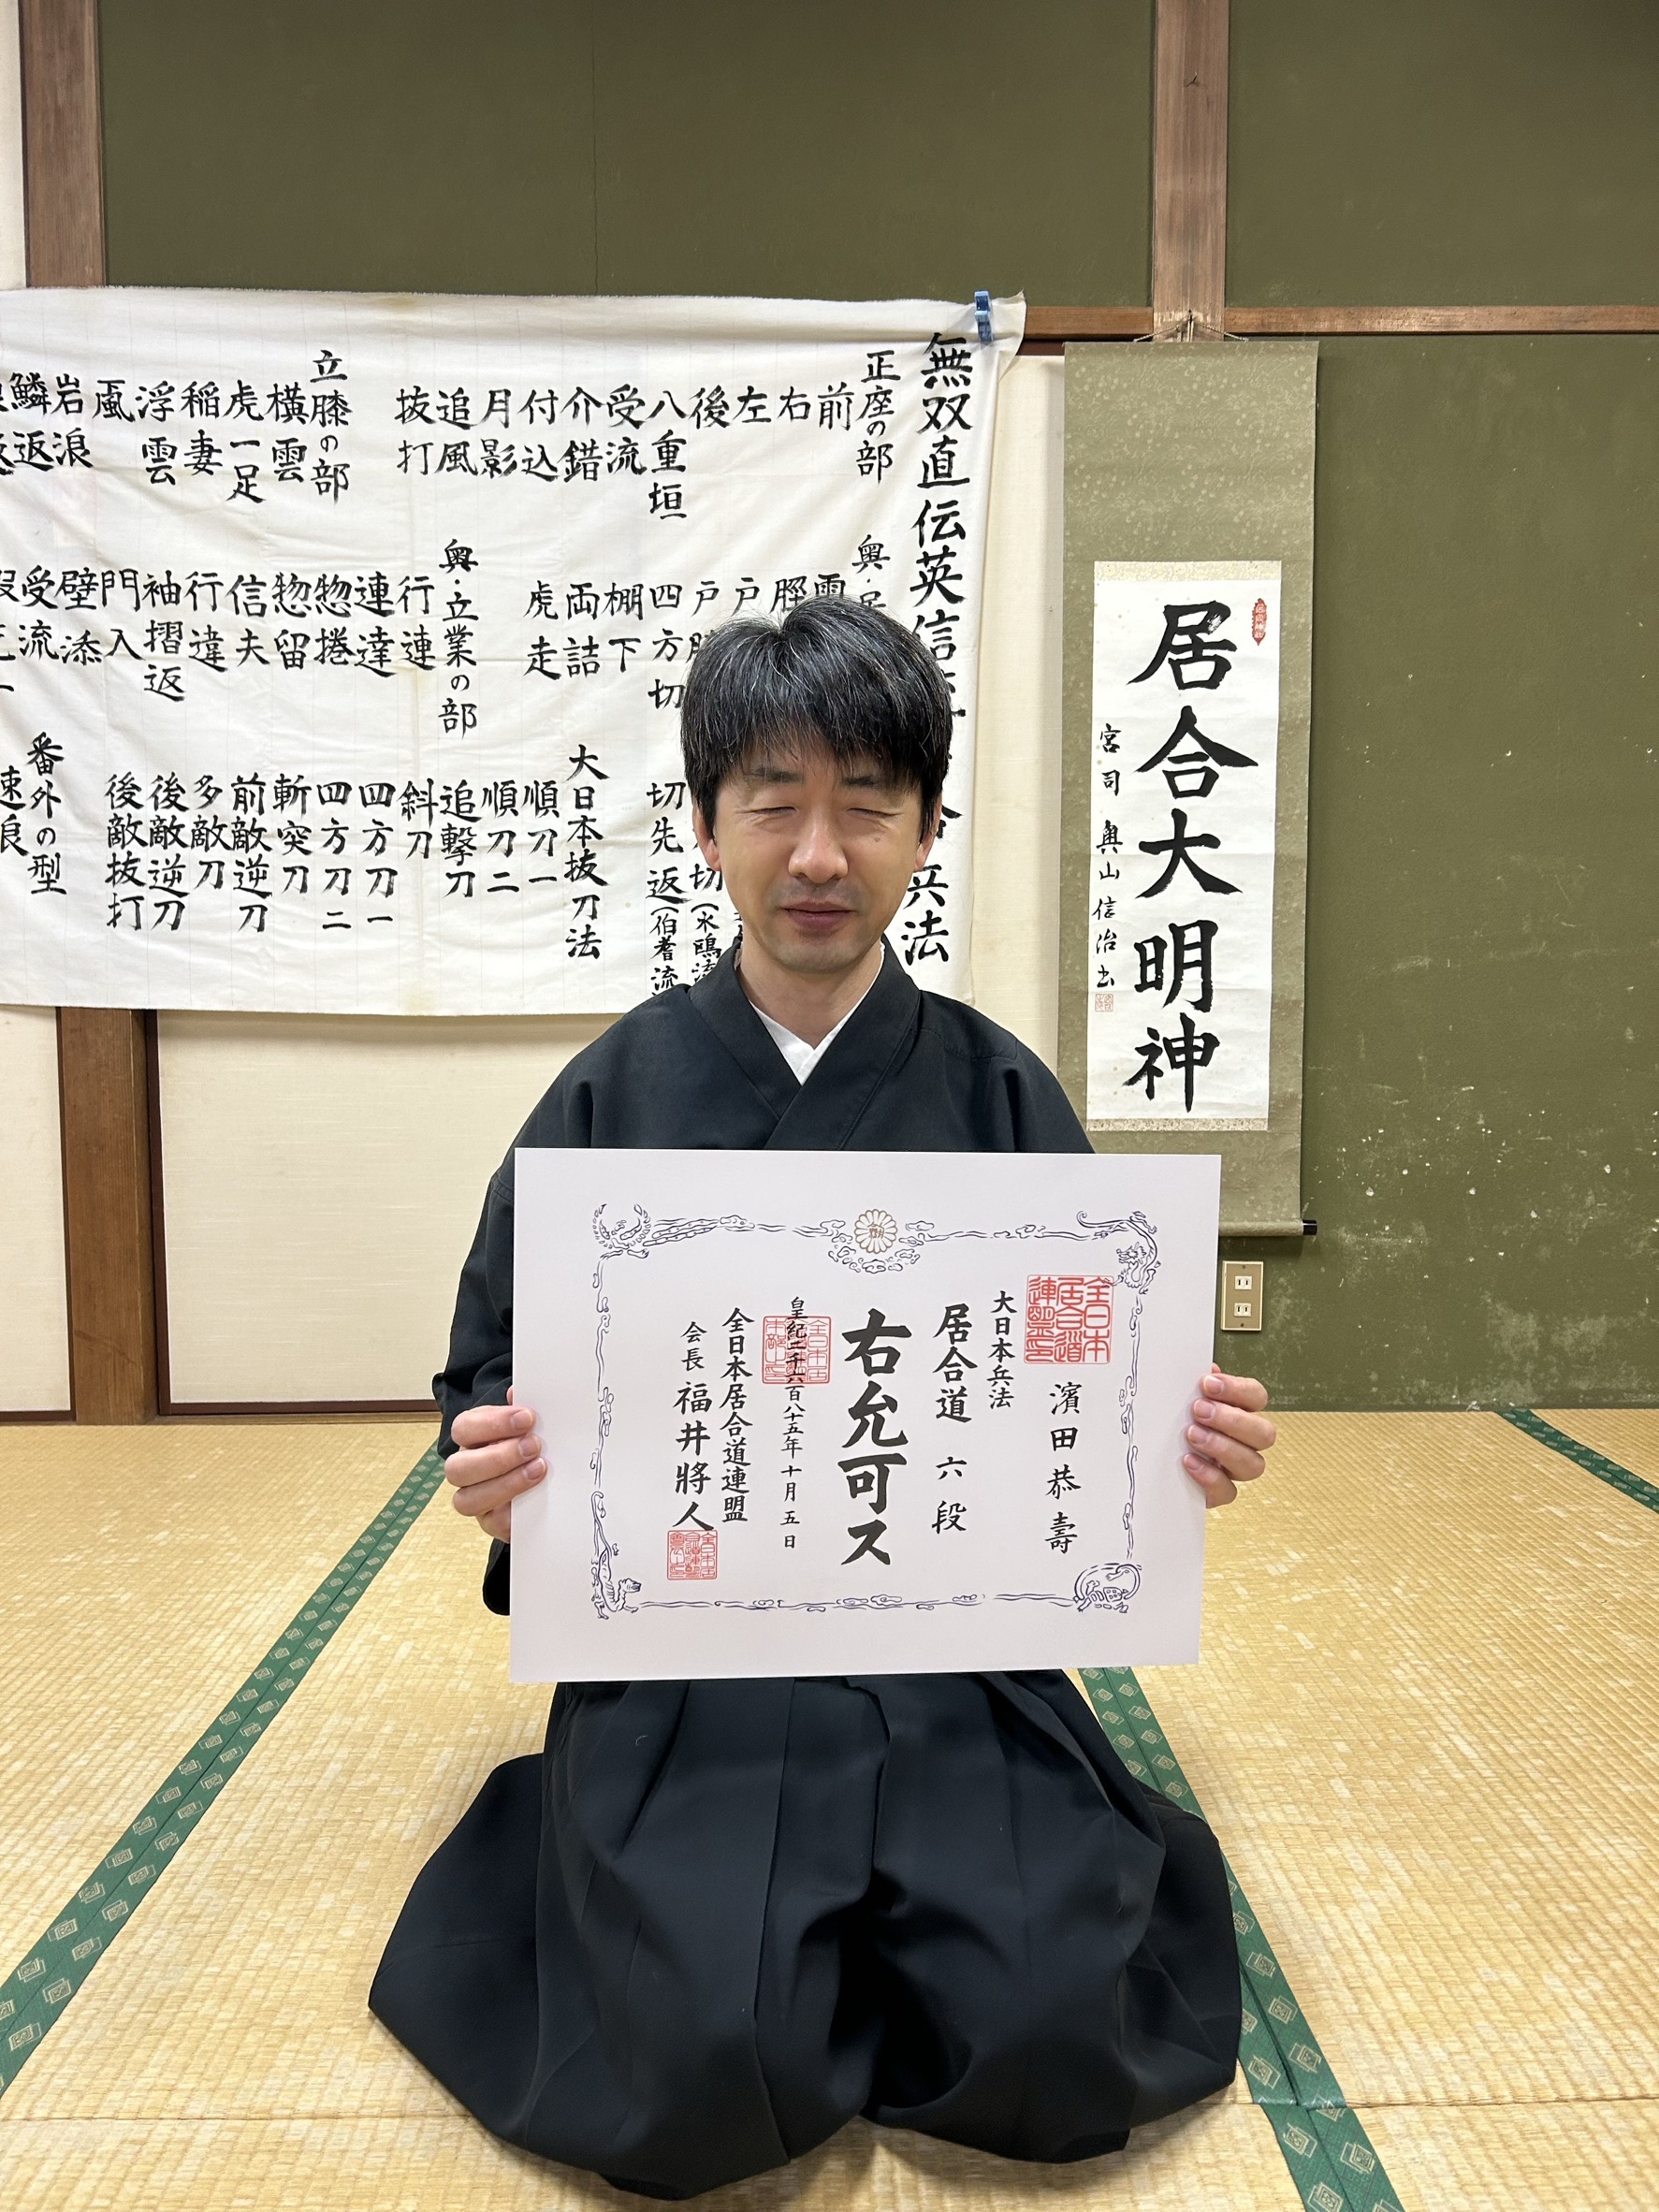 無双直伝英信
兵法
正座の部
前
右
左
後
八重垣
受流
介錯
付込
月影
追風
抜打
立膝の部
横雲
虎一足
稲妻
浮雲
颪
岩浪
鱗返
奥・居
四方切
棚下
両詰
虎走
奥・立業の部
行連
連達
惣捲
惣留
信夫
行違
袖摺返
門入
壁添
受流
切先返(伯耆流
大日本抜刀法
順刀一
順刀二
追撃刀
斜刀
四方刀一
四方刀二
斬突刀
前敵逆刀
多敵刀
後敵逆刀
後敵抜打
番外の型
速浪
居合大明神
宮司 奥山信治
全日本居合道連盟印
濱田恭壽
大日本兵法
居合道 六段
右允可ス
皇紀二千六百八十五年十月五日
全日本居合道連盟
会長 福井將人